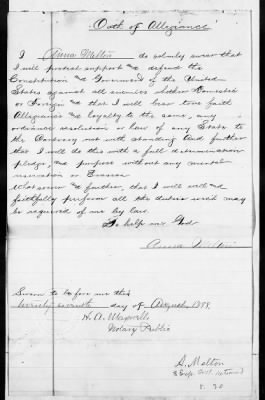 Oath of Allegiance
I Anna Melton do solemnly swear that
I will protect support & defend the
Constitution and Government of the United
States against all enemies whether Domestic
or Foreign & that I will bear true faith
Allegiance & loyalty to the same, any
ordinance resolution or law of any State to
the Contrary not with standing And further
that I will do this with a full determination
pledge, and purpose without any mental
reservation or Evasion
Whatsoever & further, that I will well and
faithfully perform all the duties which may
be required of me by law.
So help me God
Anna Melton
Sworn to before me this
twenty seventh day of August
H. A.
Notary Public
S. Melton